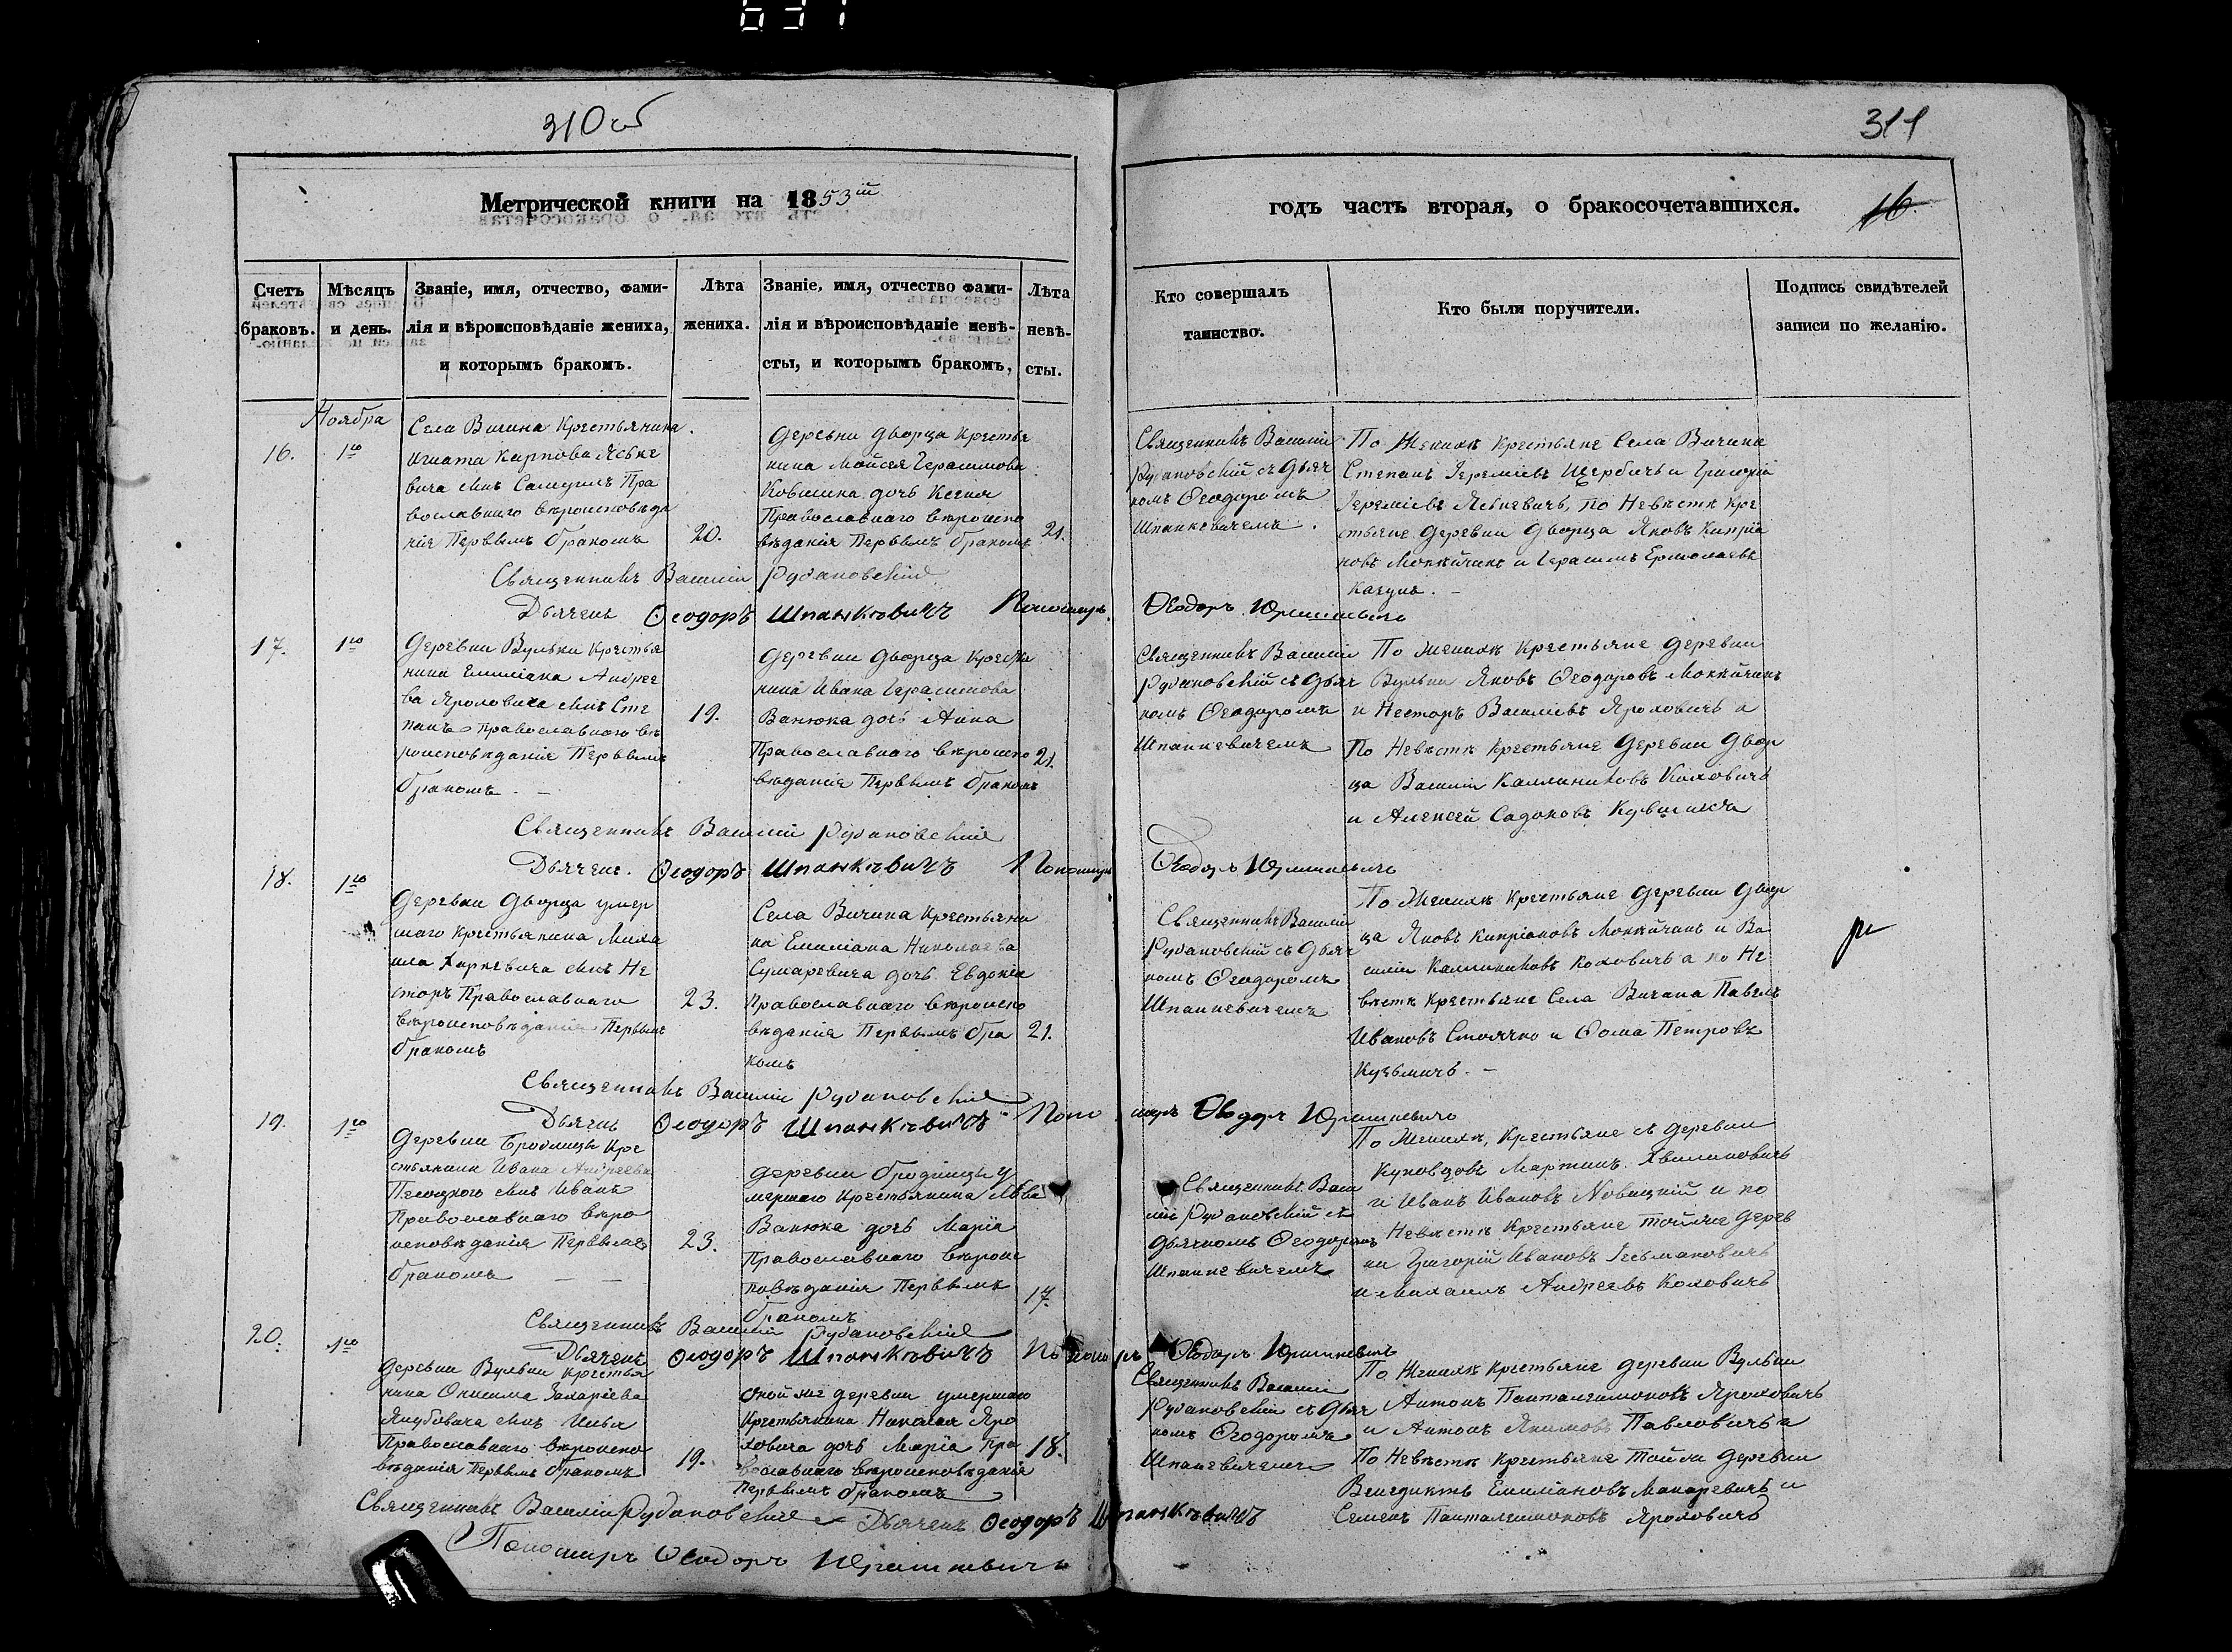 631
310 об
311
Метрической книги на 1853ій
годъ часть вторая, о бракосочетавшихся.
16.
Счетъ браковъ.
Мѣсяцъ и день.
Званіе, имя, отчество, фами-
лія и вѣроисповѣданіе жениха,
и которымъ бракомъ.
Лѣта
жениха.
Званіе, имя, отчество фами-
лія и вѣроисповѣданіе невѣ-
сты, и которымъ бракомъ,
Лѣта
невѣ-
сты.
Кто совершалъ
таинство.
Кто были поручители.
Подпись свидѣтелей
записи по желанію.
Ноября
16.
1го
Села Вичина Крестьянина
Игната Карпова Яське
вича сынъ Самуилъ Пра
вославнаго вѣроисповѣда
нія Первымъ бракомъ
20.
Деревни Дворца Крестья
нина Мойсея Герасимова
Ковшика дочь Ксенія
Православнаго вѣроиспо
вѣданія Первымъ бракомъ
21.
Священникъ Василій
Рудаковскій съ Дьяч
комъ Ѳеодоромъ
Шпанкевичемъ.
По Женихѣ Крестьяне Села Вичина
Степанъ Іереміевъ Щербичъ и Григорій
Іереміевъ Яськевичъ, по Невѣстѣ Кре
стьяне Деревни Дворца Яковъ Кипріа
новъ Моккйчикъ и Герасимъ Ермолаевъ
Качунъ. –
Священникъ Василій Рудаковскій
Дьячекъ Ѳеодоръ Шпанкѣвичъ Пономаръ Ѳеодоръ Юрашкевичъ
17.
1го
Деревни Вульки Крестья
нина Емиліана Андрее
ва Яроховича сынъ Сте
панъ Православнаго вѣ
роисповѣданія Первымъ
бракомъ. –
19.
Деревни Дворца Крестья
нина Ивана Герасимова
Ванюка дочь Анна
Православнаго вѣроиспо
вѣданія Первымъ бракомъ
21.
Священникъ Василій
Рудаковскій съ Дьяч
комъ Ѳеодоромъ
Шпанкевичемъ
По Женихѣ Крестьяне Деревни
Вульки Яковъ Ѳеодоровъ Моккйчикъ
и Несторъ Василіевъ Яроховичъ а
По Невѣстѣ Крестьяне Деревни Двор
ца Василій Каллиниковъ Коховичъ
и Алексѣй Садоковъ
Священникъ Василій Рудаковскій
Дьячекъ. Ѳеодоръ Шпанкѣвичъ Пономаръ Ѳеодоръ Юрашкевичъ
18.
1го
Деревни Дворца умер
шаго Крестьянина Миха
ила сынъ Не
сторъ Православнаго
вѣроисповѣданія Первымъ
бракомъ
23.
Села Вичина Крестьяни
на Емиліана Николаева
Сумаревича дочь Евдокія
Православнаго вѣроиспо
вѣданія Первымъ бра
комъ
21.
Священникъ Василій
Рудаковскій съ Дьяч
комъ Ѳеодоромъ
Шпанкевичемъ
По Женихѣ Крестьяне Деревни Двор
ца Яковъ Кипріановъ Моккйчикъ и Ва
силій Каллиниковъ Коховичъ а по Не
вѣстѣ Крестьяне Села Вичина Павелъ
Ивановъ Стоячко и Ѳома Петровъ
Кузьмичъ. –
Священникъ Василій Рудаковскій
Дьячекъ Ѳеодоръ Шпанкѣвичъ Пономаръ Ѳеодоръ Юрашкевичъ
19.
1го
Деревни Бродницы Кре
стьянина Ивана Андреева
сынъ Иванъ
Православнаго вѣро
исповѣданія Первымъ
бракомъ – –
23.
Деревни Бродницы у
мершаго Крестьянина Льва
Ванюка дочь Марія
Православнаго вѣроис
повѣданія Первымъ
бракомъ
17.
Священникъ Васи
лій Рудаковскій съ
Дьячкомъ Ѳеодоромъ
Шпанкевичемъ
По Женихѣ, Крестьяне съ Деревни
Мартинъ
и Иванъ Ивановъ Новицкій и по
Невѣстѣ Крестьяне тойже Дерев
ни Григорій Ивановъ
и Михаилъ Андреевъ Коховичъ
Священникъ Василій Рудаковскій
Дьячекъ Ѳеодоръ Шпанкѣвичъ Пономаръ Ѳеодоръ Юрашкевичъ
20.
1го
Деревни Вульки Крестья
нина Онисима Захаріева
Якубовича сынъ Илья
Православнаго вѣроиспо
вѣданія Первымъ бракомъ
19.
Оной же деревни умершаго
Крестьянина Николая Яро
ховича дочь Марія Пра
вославнаго вѣроисповѣданія
Первымъ бракомъ
18.
Священникъ Василій
Рудаковскій съ Дьяч
комъ Ѳеодоромъ
Шпанкевичемъ
По Женихѣ Крестьяне Деревни Вульки
Антонъ Панталеимоновъ Яроховичъ
и Антонъ Якимовъ Павловичъ а
По Невѣстѣ Крестьяне Тойже Деревни
Венедиктъ Емиліановъ Макаревичъ и
Семенъ Панталеимоновъ Яроховичъ
Священникъ Василій Рудаковскій Дьячекъ Ѳеодоръ Шпанкѣвичъ
Пономаръ Ѳеодоръ Юрашкевичъ